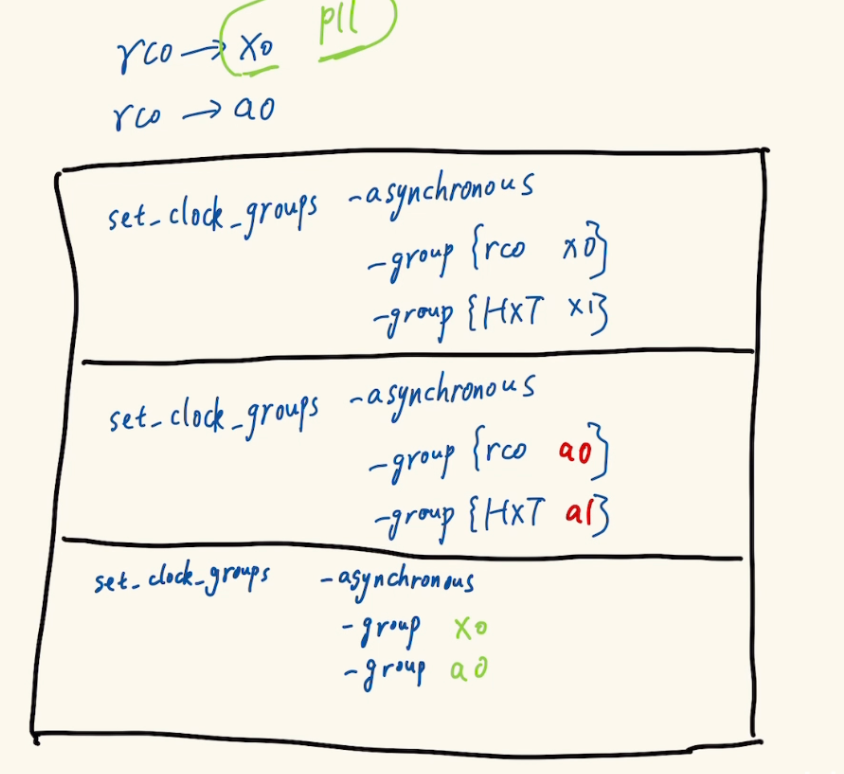 rco → x0 pll
rco → a0
set_clock_groups -asynchronous
-group {rco x0}
-group {HXT x1}
set_clock_groups -asynchronous
-group {rco a0}
-group {HXT a1}
set_clock_groups -asynchronous
-group x0
-group a0